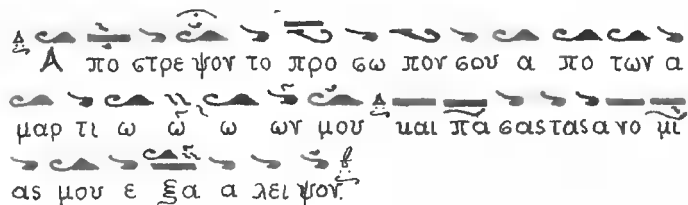 Α πο στρε ψον το προ σω πον σου α πο των α
μαρ τι ω ω ω ων μου και πα σας τας α νο μι
ας μου ε ξα α λει ψον.